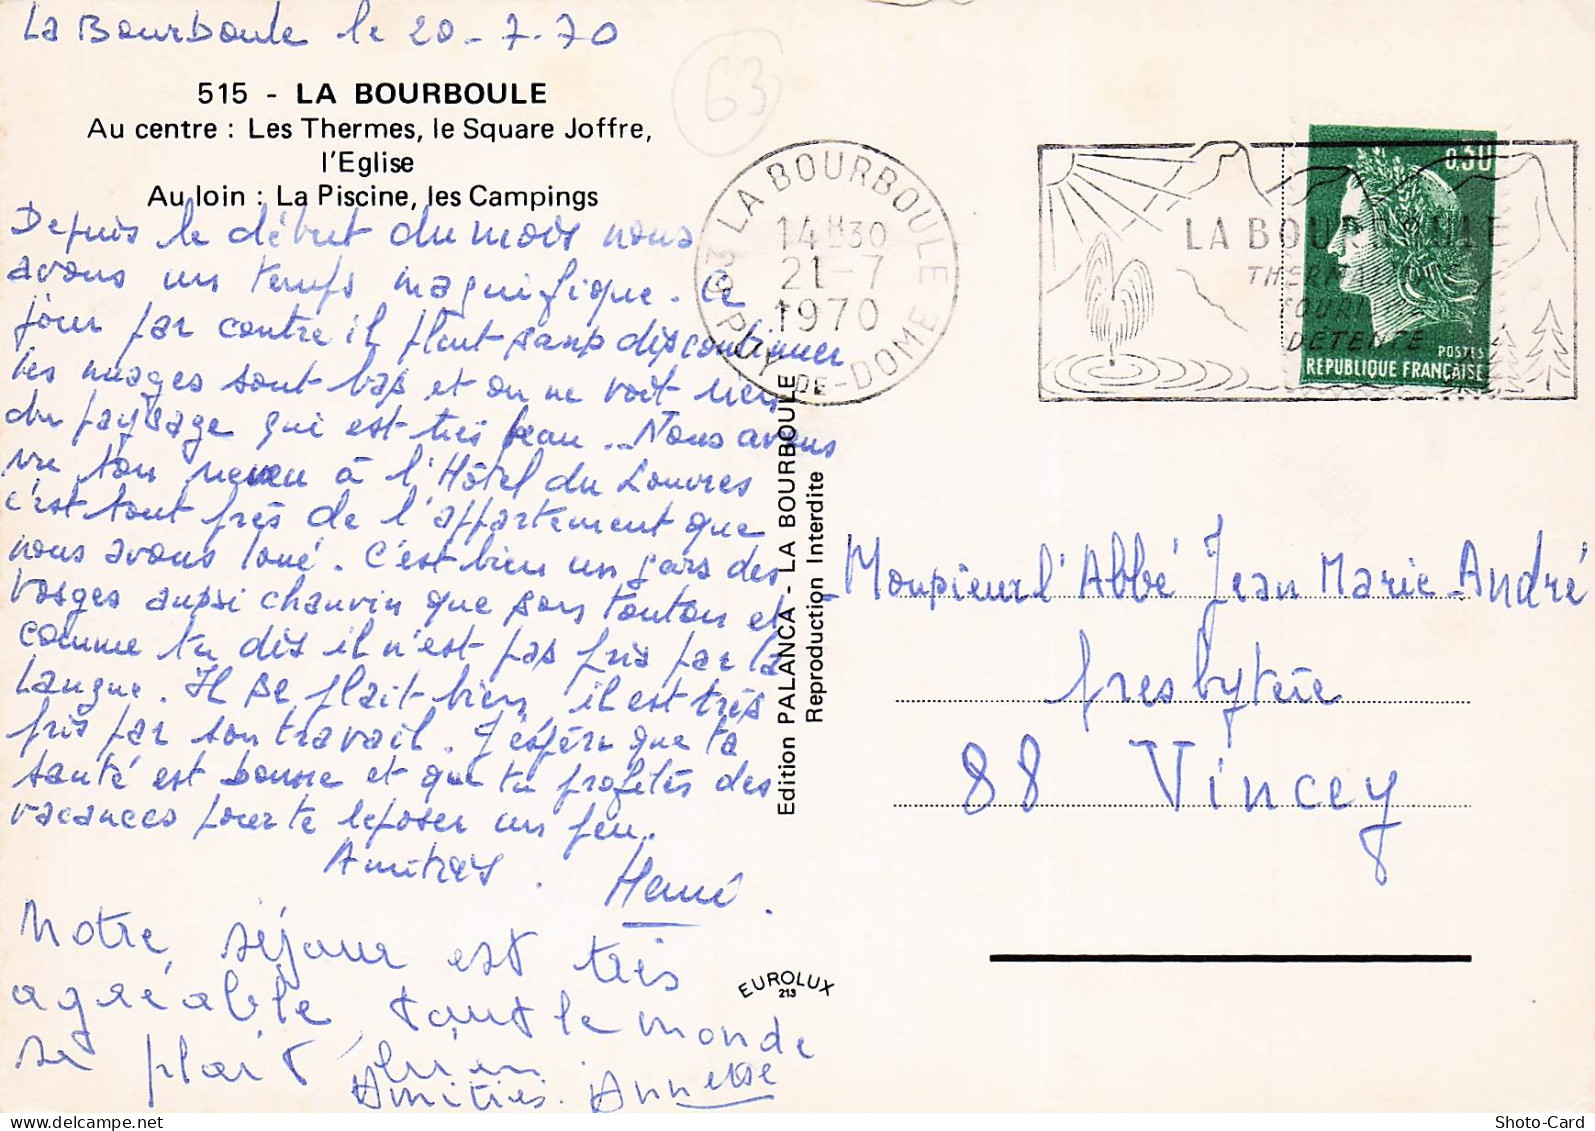 La Bourboule le 20-7-70
515 - LA BOURBOULE
Au centre : Les Thermes, le Square Joffre,
l'Eglise
Au loin : La Piscine, les Campings
Depuis le début du mois nous
avons un temps magnifique. Ce
jour par contre il pleut sans discontinuer
les nuages sont bas et on ne voit rien
du paysage qui est très beau... Nous avons
vu ton neveu à l'Hôtel du Louvres
c'est tout près de l'appartement que
nous avons loué. C'est bien un gars des
Vosges aussi chauvin que son tonton et
comme tu dis il n'est pas pris par la
Langue. Il se plait bien, il est très
pris par son travail. J'espère que ta
santé est bonne et que tu profites des
vacances pour te reposer un peu.
Amitiés.
Notre séjour est très
agréable, tout le monde
se plait bien
Amitiés. Annette
63
LA BOURBOULE
14H30
21-7
1970
63 PUY-DE-DOME
LA BOURBOULE
THERMALISME
TOURISME
DETENTE
0,30
POSTES
REPUBLIQUE FRANÇAISE
Edition PALANCA - LA BOURBOULE
Reproduction Interdite
Monsieur l'Abbé Jean Marie André
presbytère
88 Vincey
EUROLUX
213
Shoto-Card